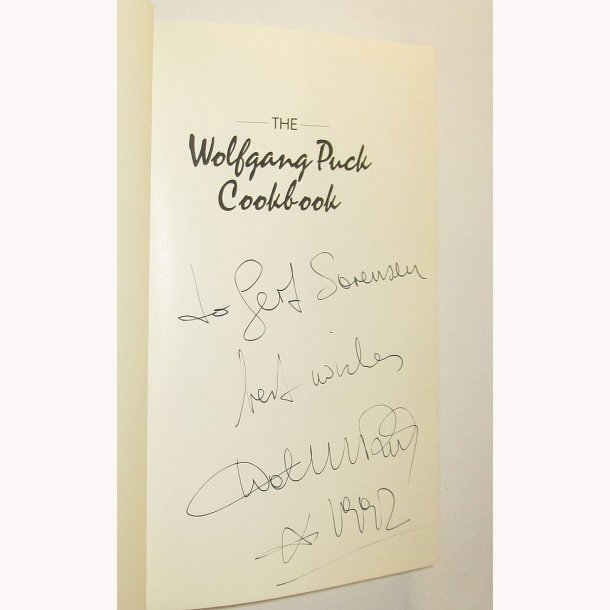 THE
Wolfgang Puck
Cookbook
to Gert Sorensen
best wishes
1992